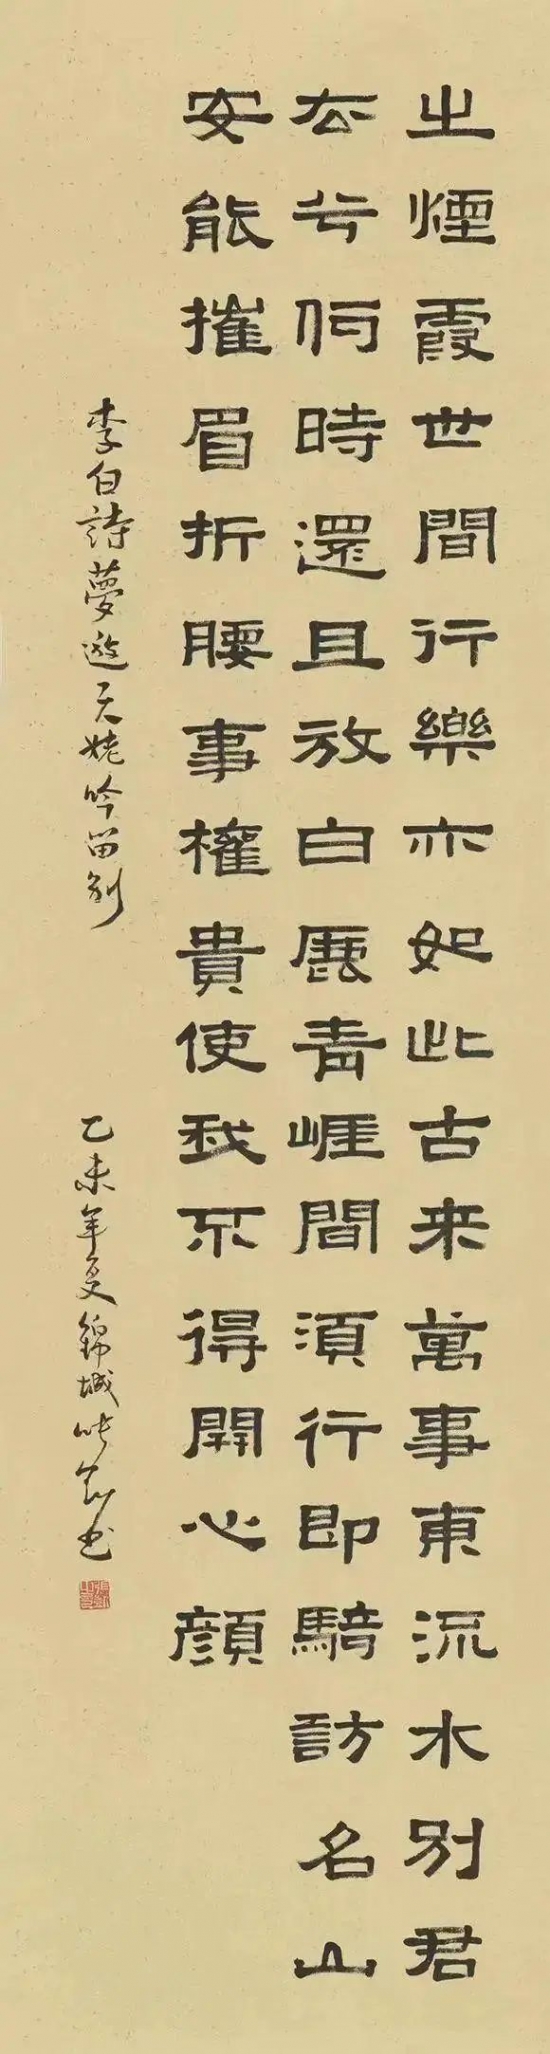 之煙霞世間行樂亦如此古来萬事東流水别君
去兮何時還且放白鹿青崕間須行即騎訪名山
安能摧眉折腰事權貴使我不得開心顔
李白詩夢遊天姥吟留别
乙未年夏錦城书